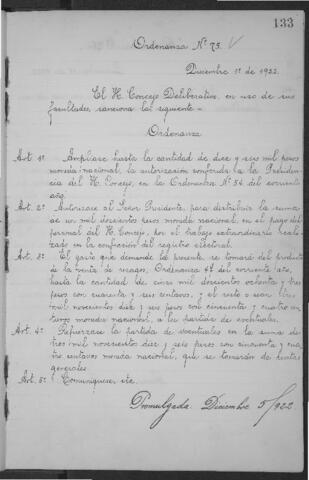 133
Ordenanza Nº 75.
Diciembre 1º de 1922.
El H. Concejo Deliberativo, en uso de sus
facultades, sanciona la siguiente =
Ordenanza
Art. 1º Ampliase hasta la cantidad de diez y seis mil pesos
moneda nacional, la autorización conferida a la Presiden-
cia del H. Concejo, en la Ordenanza Nº 54 del corriente
año.
Art. 2º Autorizase al Señor Presidente, para distribuir la suma
de un mil doscientos pesos moneda nacional, en el pago del
personal del H. Concejo, por el trabajo extraordinario reali-
zado en la confección del registro electoral.
Art. 3º El gasto que demanda la presente, se tomará del producto
de la venta de Ordenanza del corriente año,
hasta la cantidad de cinco mil doscientos ochenta y tres
pesos con cuarenta y seis centavos, y el resto o sean tres
mil novecientos diez y seis pesos con cincuenta y cuatro cen-
tavos moneda nacional, a la partida de eventuales.
Art. 4º Refuerzase la partida de eventuales en la suma de
tres mil novecientos diez y seis pesos con cincuenta y cua-
tro centavos moneda nacional, que se tomarán de rentas
generales.
Art. 5º Comuniquese, etc.
Promulgada Diciembre 5/922